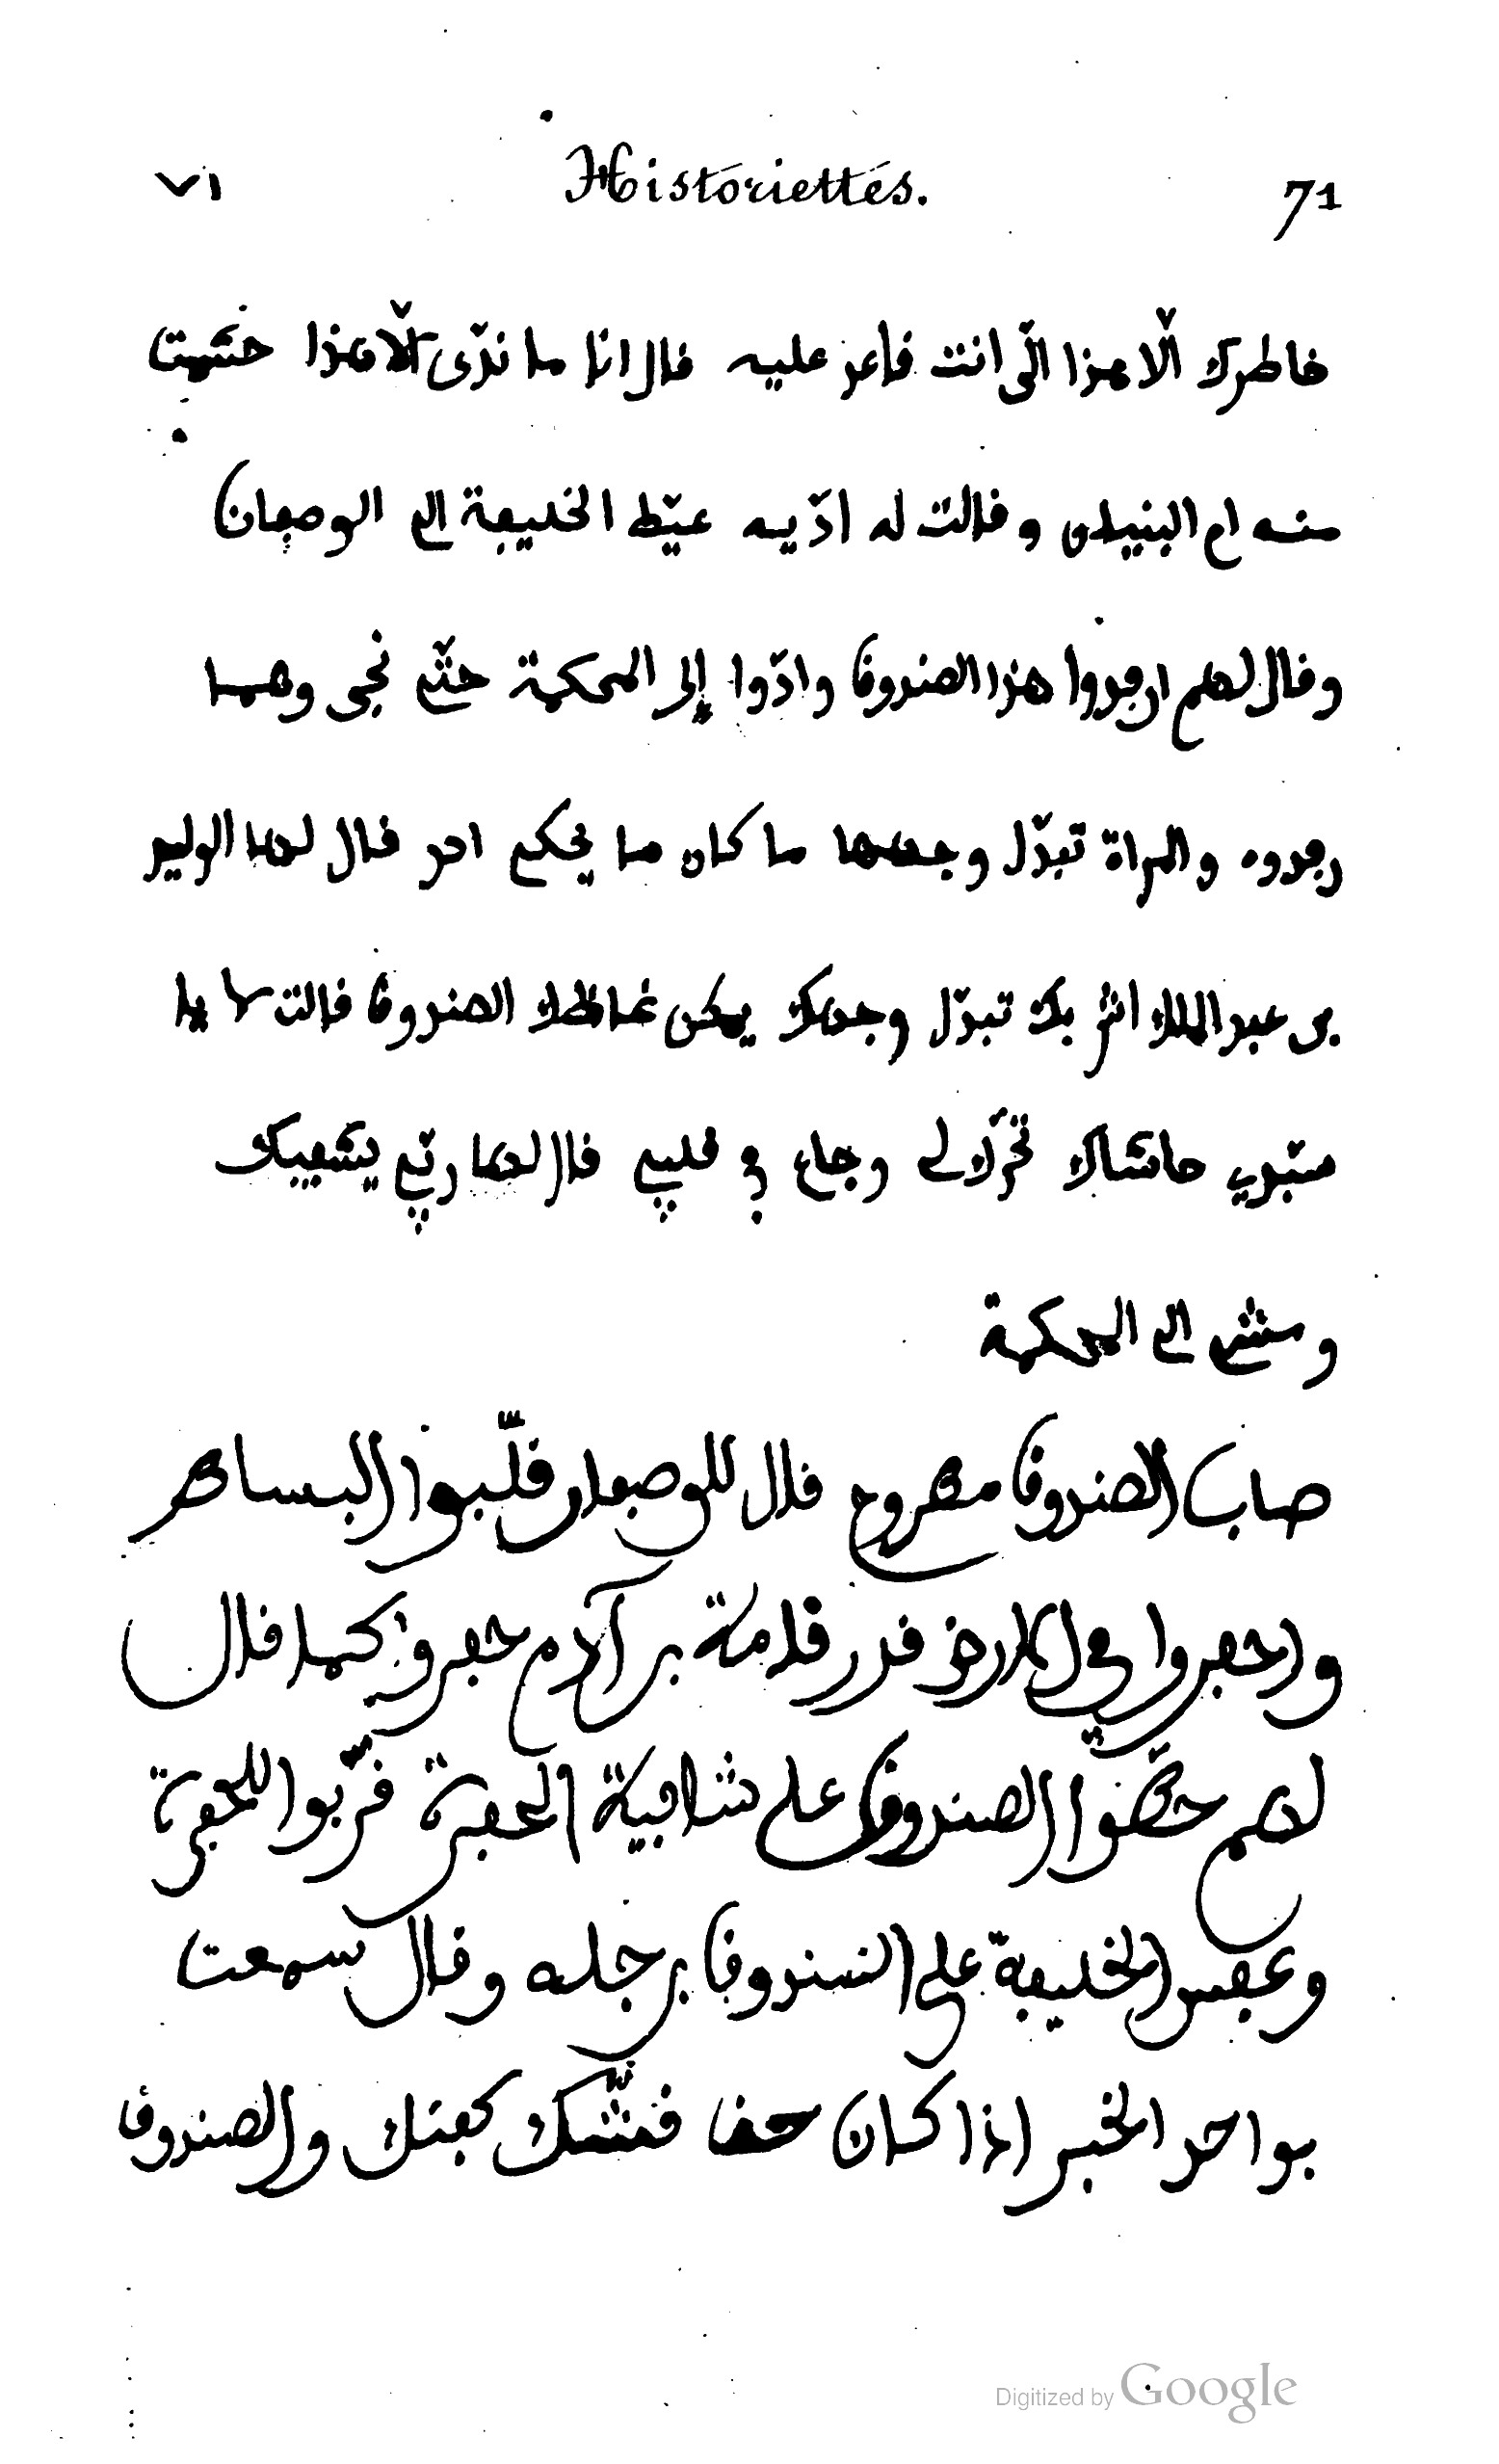 ٧١ Historiettes. 71
خاطرك الّا هذا الّي انت فاعد عليه فال انا ما ندّى الّا هذا حشمت
منه ام البنين وفالت له ادّيه عيّط الخليفة الى الوصفان
وفال لهم ارفدوا هذا الصندوق وادّوا إلى المحكمة حتّى نجى وهما
رفدوه والمراة تبدّل وجهها ما كان ما يحكى احد فال لها الوليد
بن عبد الملك اش بك تبدّل وجهك يمكن غاظك الصندوق فالت لها يا
سيدي حاشاك تحرّك لي وجاع في فلبي فال لها ربّي يشفيك
ومشى الى المحكمة
صاب الصندوق مطروح فال للوصفان فلّبوا البساط
واحفروا في الارض فدر فامة بن آدم حفروا كما فال
لهم حطّوا الصندوق على شافية الحفرة فرّبوا للحفرة
وعفس الخليفة على السندوق برجله وفال سمعت
بواحد الخبر اذا كان حفا فشّك كفنك والصندوق
Digitized by Google